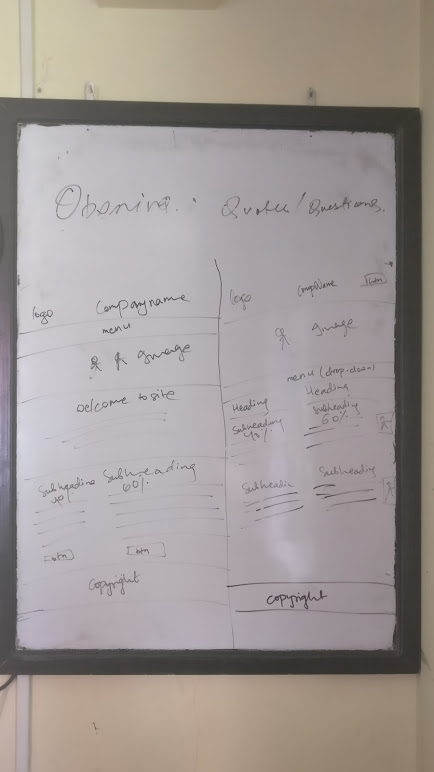 Obanini.: Quotes/Questions.
logo Companyname
menu
image
welcome to site
Subheading Subheading
40% 60%
btn btn
Copyright
logo CompName btn
image
menu (drop-down)
Heading
Heading
Subheading Subheading
60%
Subheadin Subheading
copyright